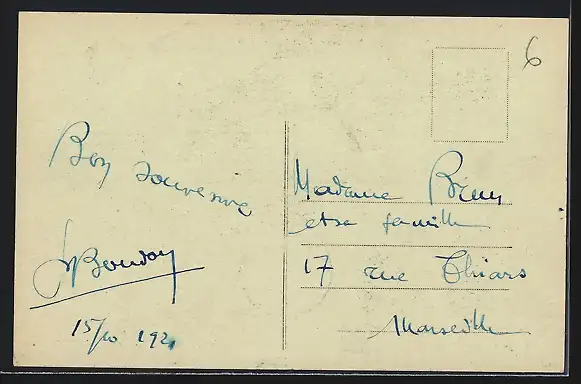 6
Bon souvenir
Boudoy
15/10 192
Madame Brun
et sa famille
17 rue Thiars
Marseille